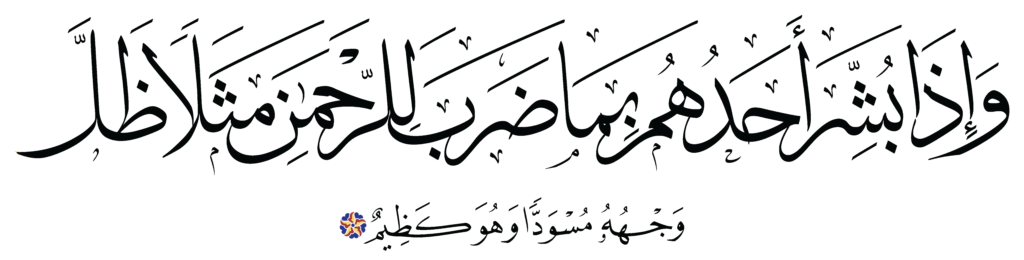 وَإِذَا بُشِّرَ أَحَدُهُم بِمَا ضَرَبَ لِلرَّحْمَٰنِ مَثَلًا ظَلَّ
وَجْهُهُۥ مُسْوَدًّا وَهُوَ كَظِيمٌ